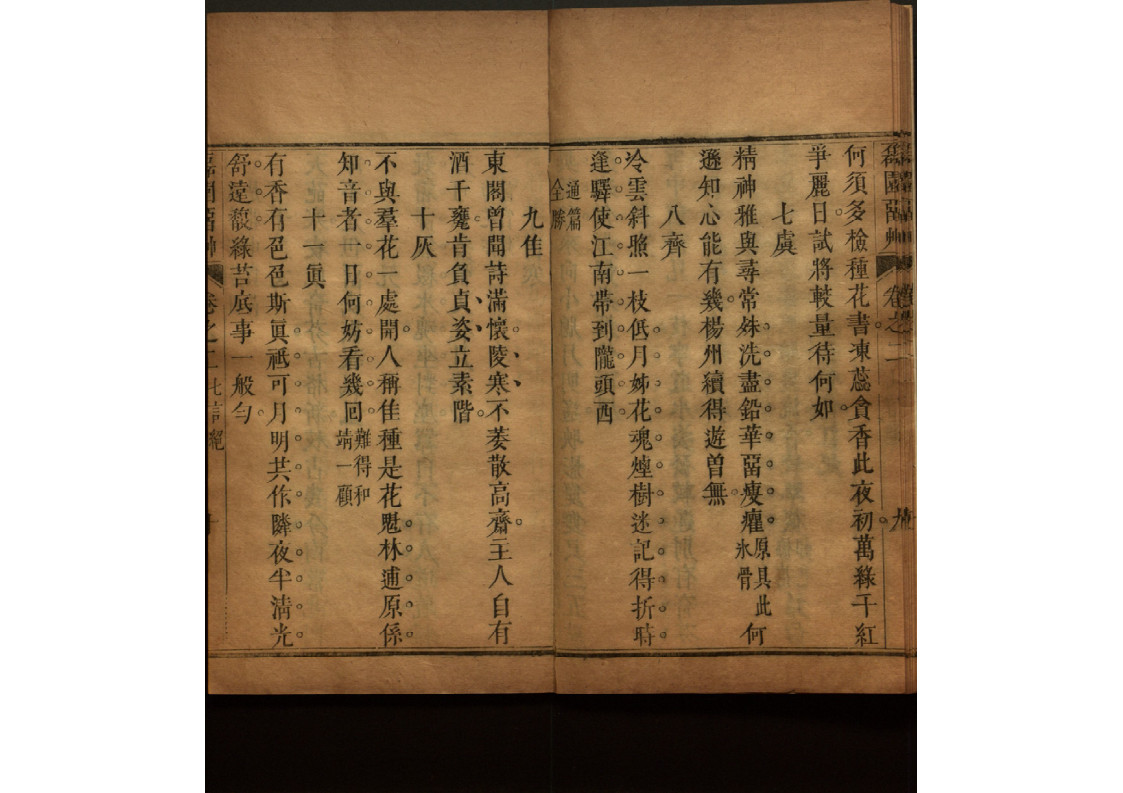 何須多檢種花書凍蕊貪香此夜初萬綠千紅
爭麗日試將較量待何如
七虞
精神雅與尋常殊洗盡鉛華留瘦癯原具此氷骨何
遜知心能有幾楊州續得遊曾無
八齊
冷雲斜照一枝低月姊花魂煙樹迷記得折時
逢驛使江南帶到隴頭西
通篇全勝
九佳
東閣曾開詩滿懷陵寒不萎散高齋主人自有
酒千甕肯負貞姿立素階
十灰
不與羣花一處開人稱佳種是花魁林逋原係
知音者一日何妨看幾回難得和靖一顧
十一眞
有香有色色斯眞祗可月明共作隣夜半淸光
舒遠馥綠苔底事一般勻
卷之二